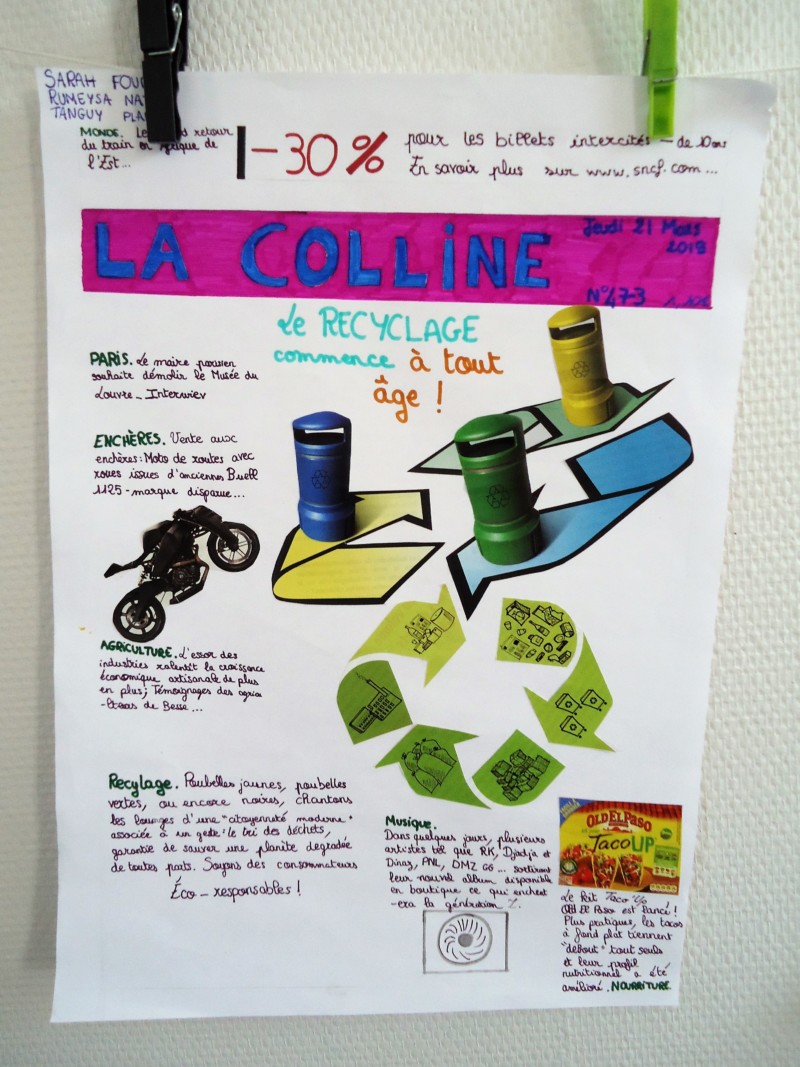 SARAH FOU
RUMEYSA NA
TANGUY PLA
MONDE. Le retour
du train en Afrique de
l'Est...
-30%
pour les billets intercités - de 10 ans
En savoir plus sur www.sncf.com...
LA COLLINE
Jeudi 21 Mars
2019
N°473
Le RECYCLAGE
commence à tout
âge !
PARIS. Le maire parisien
souhaite démolir le Musée du
Louvre_Interwiev
ENCHÈRES. Vente aux
enchères: Moto de routes avec
roues issues d'anciennes Buell
1125 - marque disparue...
AGRICULTURE. L'essor des
industries ralentit la croissance
économique artisanale de plus
en plus; Témoignages des agricu
-lteurs de Besse...
Recylage. Poubelles jaunes, poubelles
vertes, ou encore noires, chantons
les louanges d'une "citoyenneté moderne"
associée à un geste: le tri des déchets,
garantie de sauver une planète dégradée
de toutes parts. Soyons des consommateurs
Éco_responsables !
Musique.
Dans quelques jours, plusieurs
artistes tel que RK, Djadja et
Dinaz, PNL, DMZ G6... sortiront
leur nouvel album disponible
en boutique ce qui enchant
-era la génération Z.
OLD EL PASO
Taco UP
Le Kit Taco Up
Old El Paso est lancé !
Plus pratiques, les tacos
à fond plat tiennent
"debout" tout seuls
et leur profil
nutritionnel a été
amélioré. NOURRITURE.